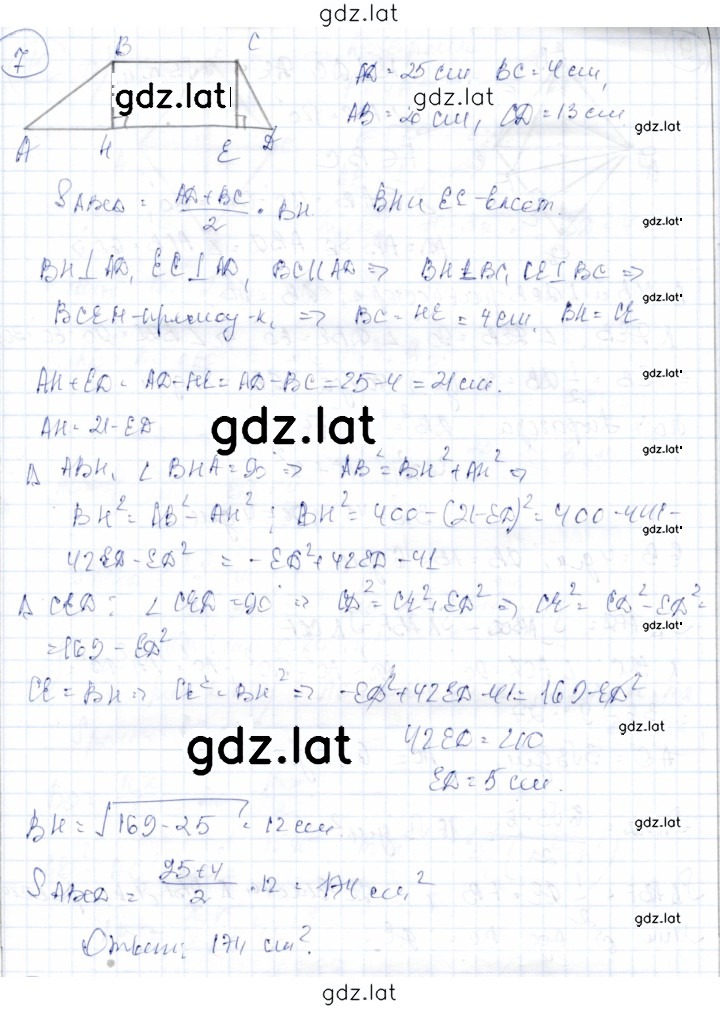 gdz.lat
7
B C
gdz.lat
A H E D
AD = 25 см BC = 4 см,
gdz.lat
AB = 20 см, CD = 13 см
gdz.lat
S ABCD = (AD + BC)/2 · BH. BH и EC - высот.
gdz.lat
BH ⊥ AD, EC ⊥ AD, BC || AD ⇒ BH ⊥ BC, CE ⊥ BC ⇒
gdz.lat
BCEH - прямоу-к, ⇒ BC = HE = 4 см, BH = CE
AH + ED = AD - HE = AD - BC = 25 - 4 = 21 см.
gdz.lat
AH = 21 - ED
gdz.lat
gdz.lat
Δ ABH, ∠ BHA = 90° ⇒ AB² = BH² + AH² ⇒
BH² = AB² - AH²; BH² = 400 - (21 - ED)² = 400 - 441 -
gdz.lat
42ED - ED² = -ED² + 42ED - 41
Δ CED: ∠ CED = 90° ⇒ CD² = CE² + ED² ⇒ CE² = CD² - ED² =
gdz.lat
= 169 - ED²
CE = BH ⇒ CE² = BH² ⇒ -ED² + 42ED - 41 = 169 - ED²
gdz.lat
42ED = 210
gdz.lat
ED = 5 см.
BH = √(169 - 25) = 12 см.
gdz.lat
S ABCD = (25 + 4)/2 · 12 = 174 см²
gdz.lat
Ответ: 174 см².
gdz.lat